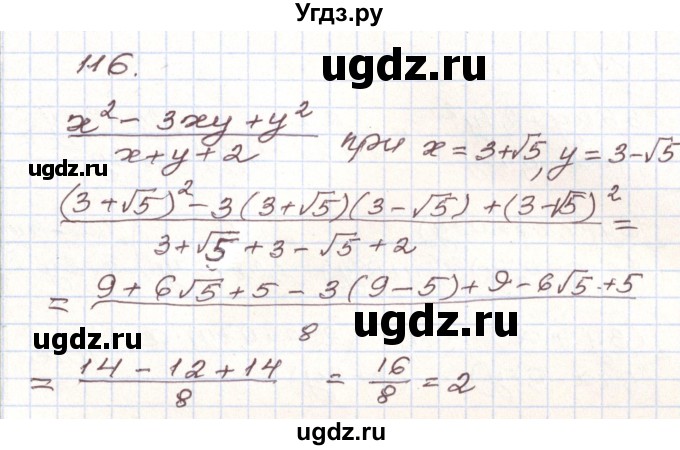 Угдз.ру
116.
ugdz.ru
(x² − 3xy + y²)/(x + y + 2) при x = 3+√5, y = 3−√5
ugdz.ru
((3+√5)² − 3(3+√5)(3−√5) + (3−√5)²)/(3+√5+3−√5+2) =
= (9+6√5+5−3(9−5)+9−6√5+5)/8
ugdz.ru
ugdz.ru
= (14−12+14)/8 = 16/8 = 2
ugdz.ru